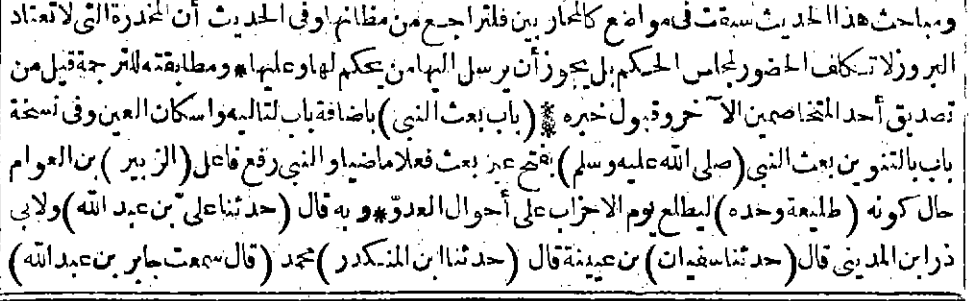 ومباحث هذا الحديث سبقت فى مواضع كالمحاربين فلتراجع من مظانها وفى الحديث أن المخدرة التى لا تعتاد
البروز لا تكلف الحضور لمجلس الحكم بل يجوز أن يرسل اليها من يحكم لها وعليها * ومطابقته للترجمة قيل من
تصديق أحد المتخاصمين الآخر وقبول خبره ﴿(باب بعث النبى) باضافة باب لتاليه واسكان العين وفى نسخة
باب بالتنوين بعث النبى (صلى الله عليه وسلم) بفتح عين بعث فعلا ماضيا والنبى رفع فاعل (الزبير) بن العوام
حال كونه (طليعة وحده) ليطلع يوم الاحزاب على أحوال العدوّ * وبه قال (حدثنا علىّ بن عبد الله) ولابى
ذر ابن المدينى قال (حدثنا سفيان) بن عيينة قال (حدثنا ابن المنكدر) محمد (قال سمعت جابر بن عبد الله)